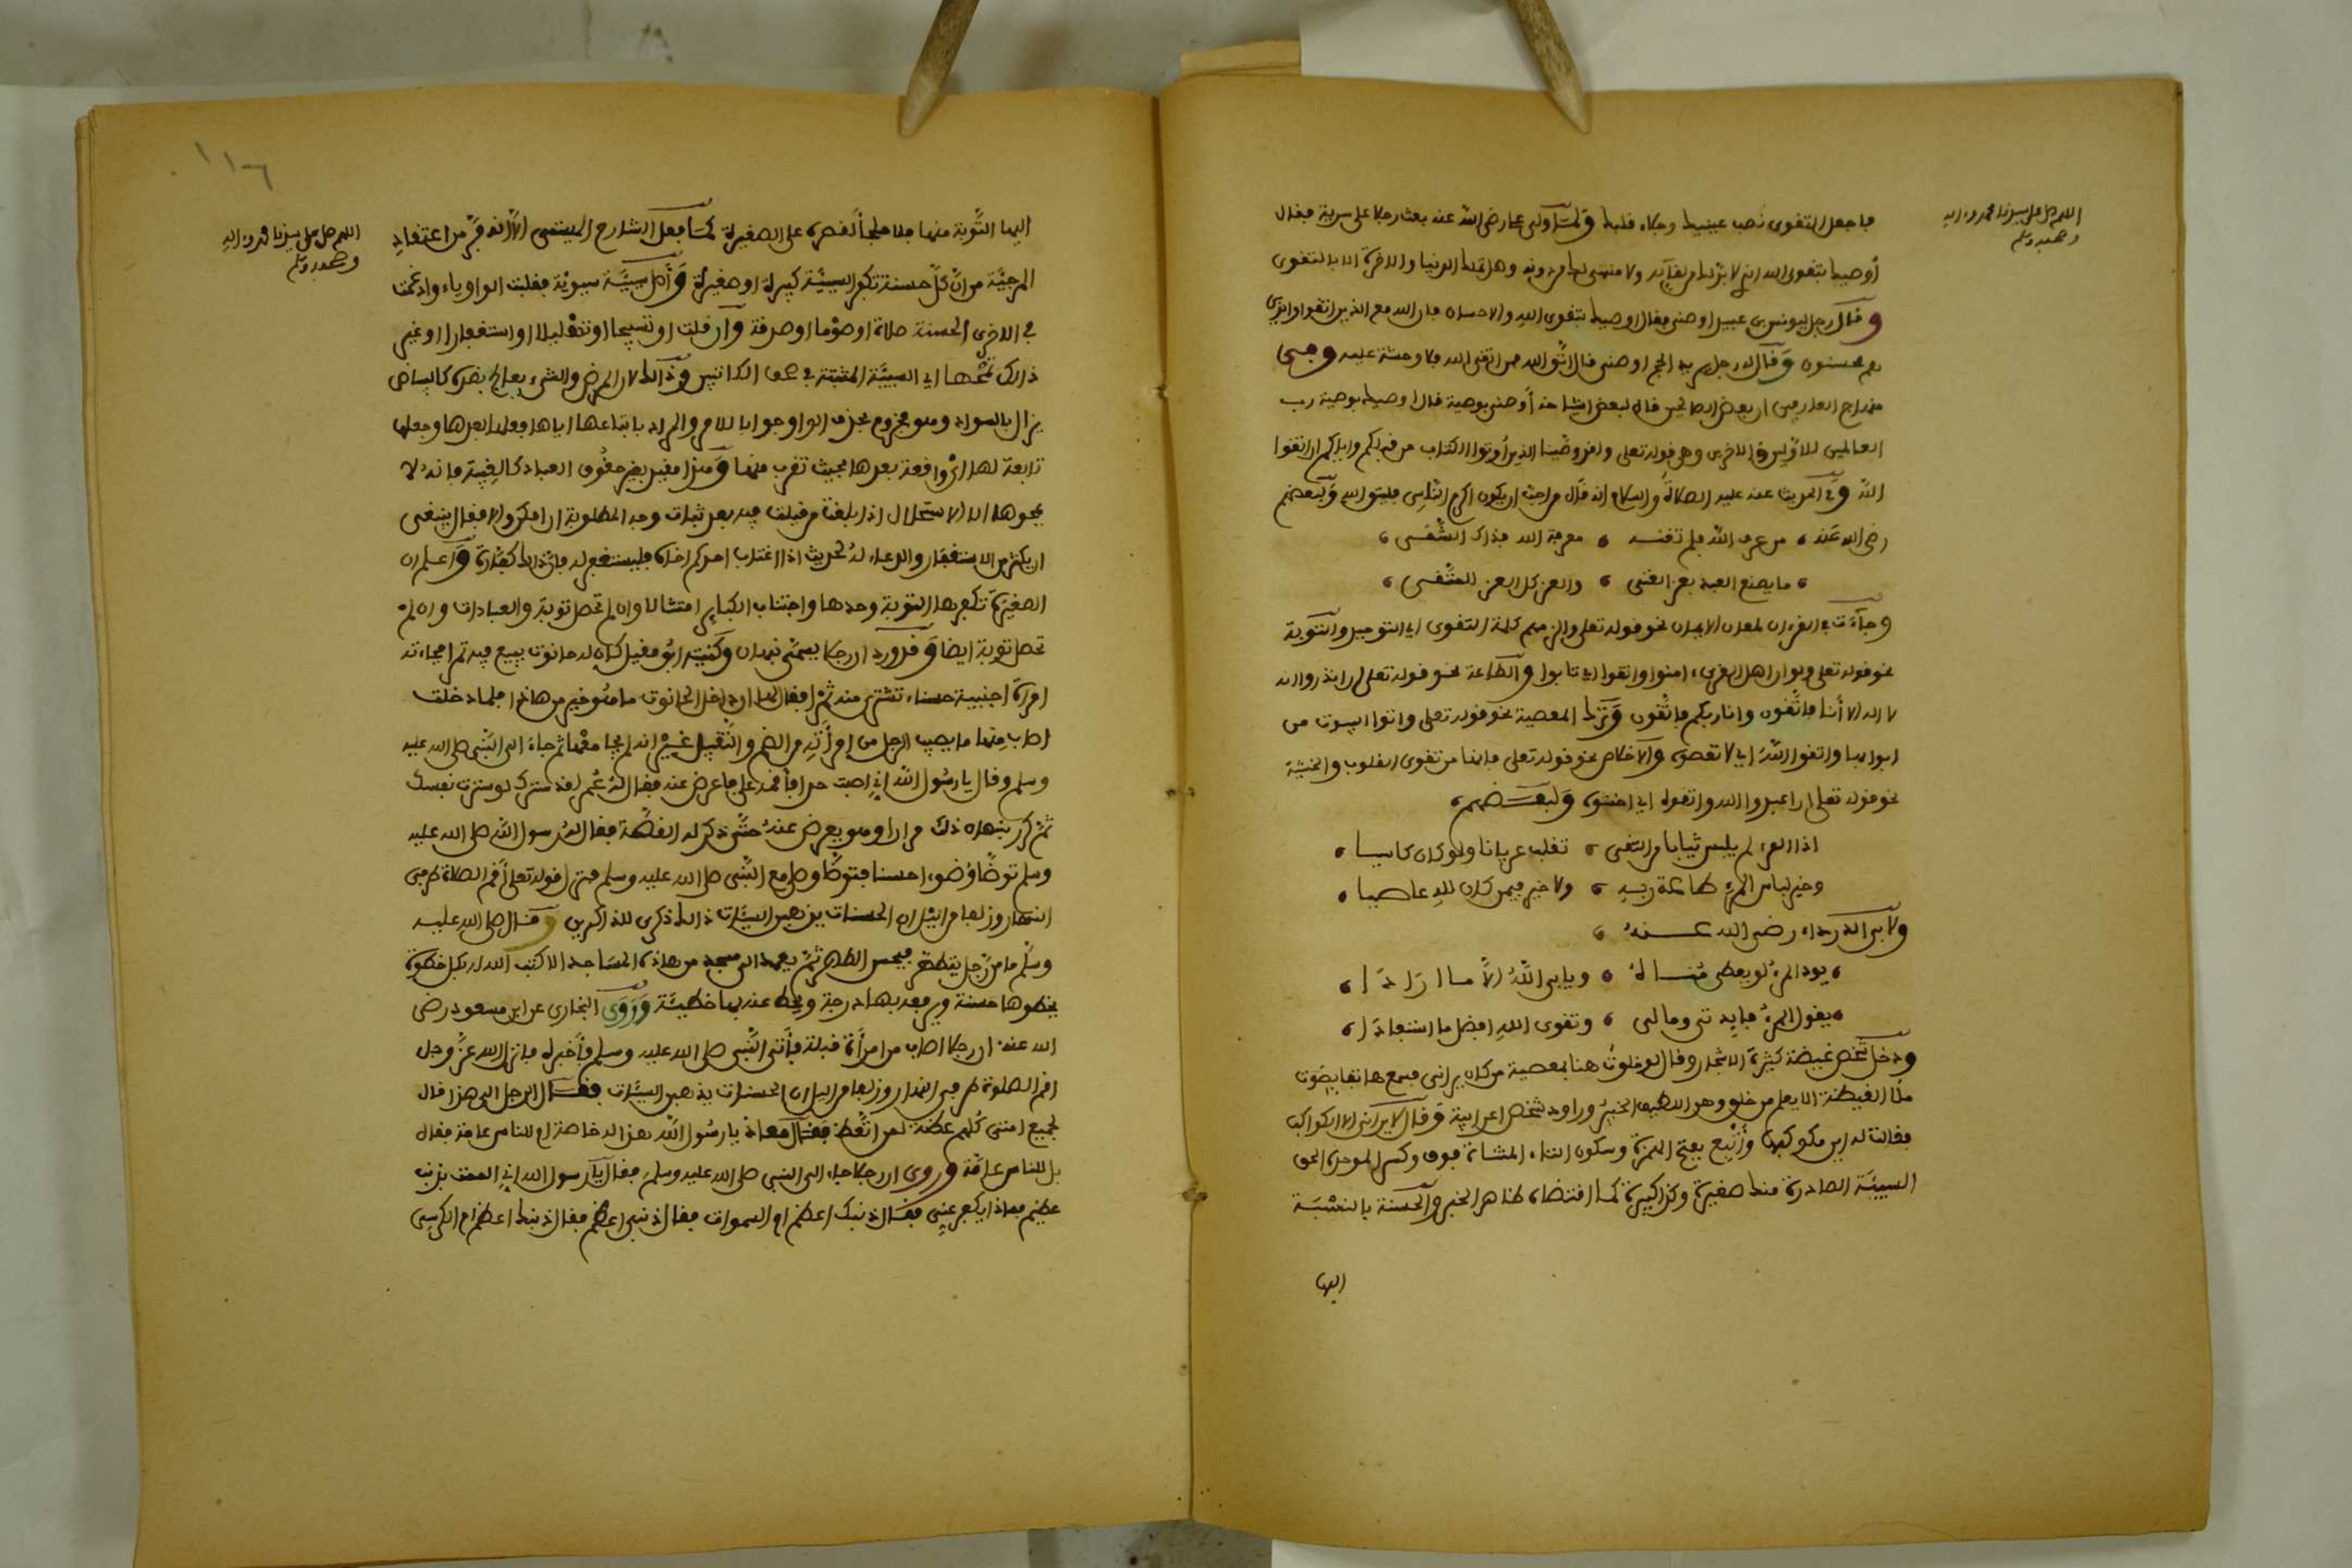 اللهم صل على سيدنا محمد وءاله
وصحبه وسلم
فاجعل التقوى نصب عينيك وجلاء قلبك ولمّا ولى علي رضي الله عنه بعث رجلا على سرية فقال
أوصيك بتقوى الله الذي لا بدّ لك من لقآئه ولا منتهى لك من دونه وهو يملك الدنيا والاخرة الا بالتقوى
وقال رجل ليونس بن عبيد اوصني فقال اوصيك بتقوى الله والاحسان فان الله مع الذين اتقوا والذين
هم محسنون وقال له رجل يريد الحج اوصني قال اتّق الله فمن اتقى الله فلا وحشة عليه وفي
منهاج العابدين ان بعض الصالحين قال لبعض اشياخه أوصني بوصية قال اوصيك بوصية رب
العالمين للاوّلين والاخرين وهي قوله تعلى ولقد وصّينا الذين أوتوا الكتاب من قبلكم وإياكم ان اتقوا
اللهَ وفي الحديث عنه عليه الصلاة والسلام انه قال من احبّ ان يكون اكرم النّاس فليتق الله ولبعضهم
رضي الله عنه من عرف اللهَ فلم تغنه معرفة الله فذاك الشّقي
ما يصنع العبد بعز الغنى والعز كل العز للمتّقي
وجآءت في القرءان لمعان الايمان نحو قوله تعلى والزمهم كلمة التقوى اي التوحيد والتّوبة
نحو قوله تعلى ولو ان اهل القرى ءامنوا واتقوا اي تابوا والطّاعة نحو قوله تعلى ان انذروا انه
لا اله الا أنا فاتّقون وانا ربكم فاتّقون وترك المعصية نحو قوله تعلى واتوا البيوت من
ابوابها واتقوا اللهَ اي لا تعصوه والاخلاص نحو قوله تعلى فإنها من تقوى القلوب والخشية
نحو قوله تعلى ان اعبدوا الله واتقوه اي اخشوه ولبعضهم
اذا المرء لم يلبس ثيابا من التقى تقلب عريانا ولو كان كاسيا
وخير لباس المرء طاعة ربه ولا خير فيمن كان لله عاصيا
ولابي الدرداء رضي الله عنهُ
يود المرءُ لو يعطى مُناهُ ويابى اللهُ الاّ ما ارادَا
يقول المرءُ فايدتي ومالي وتقوى اللهِ افضل ما استفادَا
ودخل شخص غيضة كثيرة الاشجار وقال لو خلوتُ هنا بمعصية من كان يراني فسمع هاتفا بصوت
ملأ الغيضة الا يعلم من خلق وهو اللطيف الخبيرُ وراود شخص اعرابية وقال لا يراني الا الكواكب
فقالت له اين مكوكبها وأتبِع بفتح الهمزة وسكون التاء المثناة فوق وكسر الموحدة الحق
السيئة الصادرة منك صغيرة وكذا كبيرة كما اقتضاه ظاهر الخبر والحسنة بالنسْبَة
اليها
١١٦
اللهم صل على سيدنا محمد وءاله
وصحبه وسلم
اليها التّوبة منها فلا ملجأ لقصره على الصغيرة كما فعل الشارح الهيتمي الاّ انه فرّ من اعتقادِ
المرجئة من انّ كلّ حسنة تكفر السيئة كبيرة او صغيرة وأصل سيئة سيوئة فقلبت الواو ياء وادغمت
في الاخرى الحسنة صلاة او صوْما او صدقة وان قلت او تسبيحا او تهْليلا او استغفارا او غير
ذالك تمْحها اي السيئة المثبتة في صحف الكاتبين وذالك لان المرض والشيء يعالج بضده كالبياض
يزال بالسواد وهو مجزوم بحذف الواو جوابا للامر والمراد باتباعها اياها فعلها بعدها وجعلها
تابعة لها ايْ واقعة بعدها بحيث تقرب منها وهذا مقيد بغير حقُوق العباد كالغيبة فانه لا
يمحوها الا الاستحلال اذا بلغت من قيلت فيه بعد ثبات وجه المطلوبة ان امكن والا فقال ينبغي
ان يكثر من الاستغفار والدعاء لهُ لحديث اذا اغتاب احدكم اخاه فليستغفر له فان ذالك كفارة واعلم ان
الصغيرة تكفرها التوبة وحدها واجتناب الكبائر امتثالا وان لم تحصل توبة والعبادات وان لم
تحصل توبة ايضا وقد ورد ان رجلا يسمّى نبهان وكنيته ابُو مقبل كان له حانوت يبيع فيه تمرا فجاءته
امرأة اجنبية حسناء تشتري منه تمْرا فقال لها ان داخل الحانوت ما هُو خير من هاذا فلما دخلت
اصاب مِنها ما يصيب الرجل من امرأته من الضم والتّقبيل غيْر انه لم يجامعْها ثم جاءَ الى النّبي صلى الله عليه
وسلم وقال يا رسُول الله اني اصبت حدا فأقمه علي فاعرض عنه فقال لهُ عُمر لقد سترك لو سترت نفسك
ثمّ كرر نبهان ذلك مرارا وهو يعرض عنهُ حتّى ذكر له القصّة فقال لهُ رسول الله صلى الله عليه
وسلم توضّأ وُضوءا حسنا فتوضّأ وصلى مع النّبي صلى الله عليه وسلم فنزل قوله تعلى أقم الصلاة طرفي
النهار وزلفا من اليْل ان الحسنات يذهبن السيئات ذالك ذكرى للذاكرين وقال صلى الله عليه
وسلّم ما من رّجل يتطهّر فيحسن الطهر ثمّ يعمد الى مسجد من هاذه المسَاجد الا كتب الله له بكل خطوة
يخطوها حسنة ويرفعه بها درجة ويحط عنه بها خطيئة ورَوَى البخاري عن ابن مسعود رضي
الله عنه ان رجلا اصاب من امرأة قبلة فأتى النّبي صلى الله عليه وسلم فأخبره فانزل الله عزّ وجل
اقم الصلوة طرفي النهار وزلفا من اليل ان الحسنات يذهبن السيّئات فقال الرجل الي هذا قال
لجميع امتي كلهم وروى ان رجلا جاء الى النبي صلى الله عليه وسلم فقال يا رسول الله اني
يا رسُول الله هذا له خاصة ام للناس عامة فقال
بل للناس عامّة
عظيم فماذا يكفر عنّي فقال اذنبك اعظم ام السموات فقال ذنبي اعظم فقال اذنبك اعظم ام الكرسي